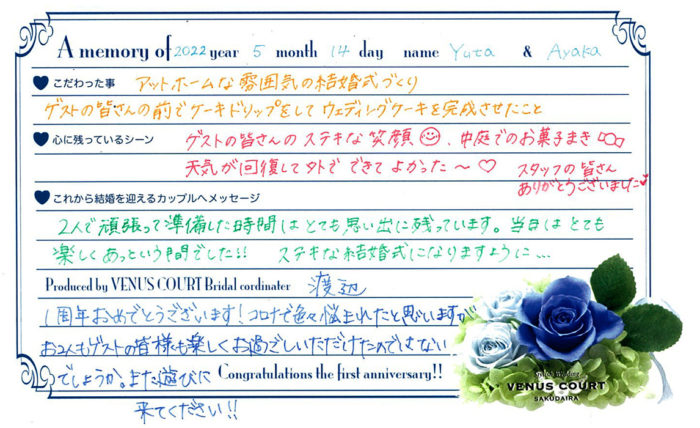 A memory of 2022 year 5 month 14 day name Yuta & Ayaka
こだわった事 アットホームな雰囲気の結婚式づくり
ゲストの皆さんの前でケーキドリップをしてウェディングケーキを完成させたこと
心に残っているシーン ゲストの皆さんのステキな笑顔、中庭でのお菓子まき
天気が回復して外でできてよかった〜♡ スタッフの皆さん
ありがとうございました
これから結婚を迎えるカップルへメッセージ
2人で頑張って準備した時間はとても思い出に残っています。当日はとても
楽しくあっという間でした!! ステキな結婚式になりますように…
Produced by VENUS COURT Bridal cordinater 渡辺
1周年おめでとうございます!コロナで色々悩まれたと思いますが
お2人もゲストの皆様も楽しくお過ごしいただけたのではない
でしょうか。また遊びに Congratulations the first anniversary!!
来てください!!
VENUS COURT
SAKUDAIRA